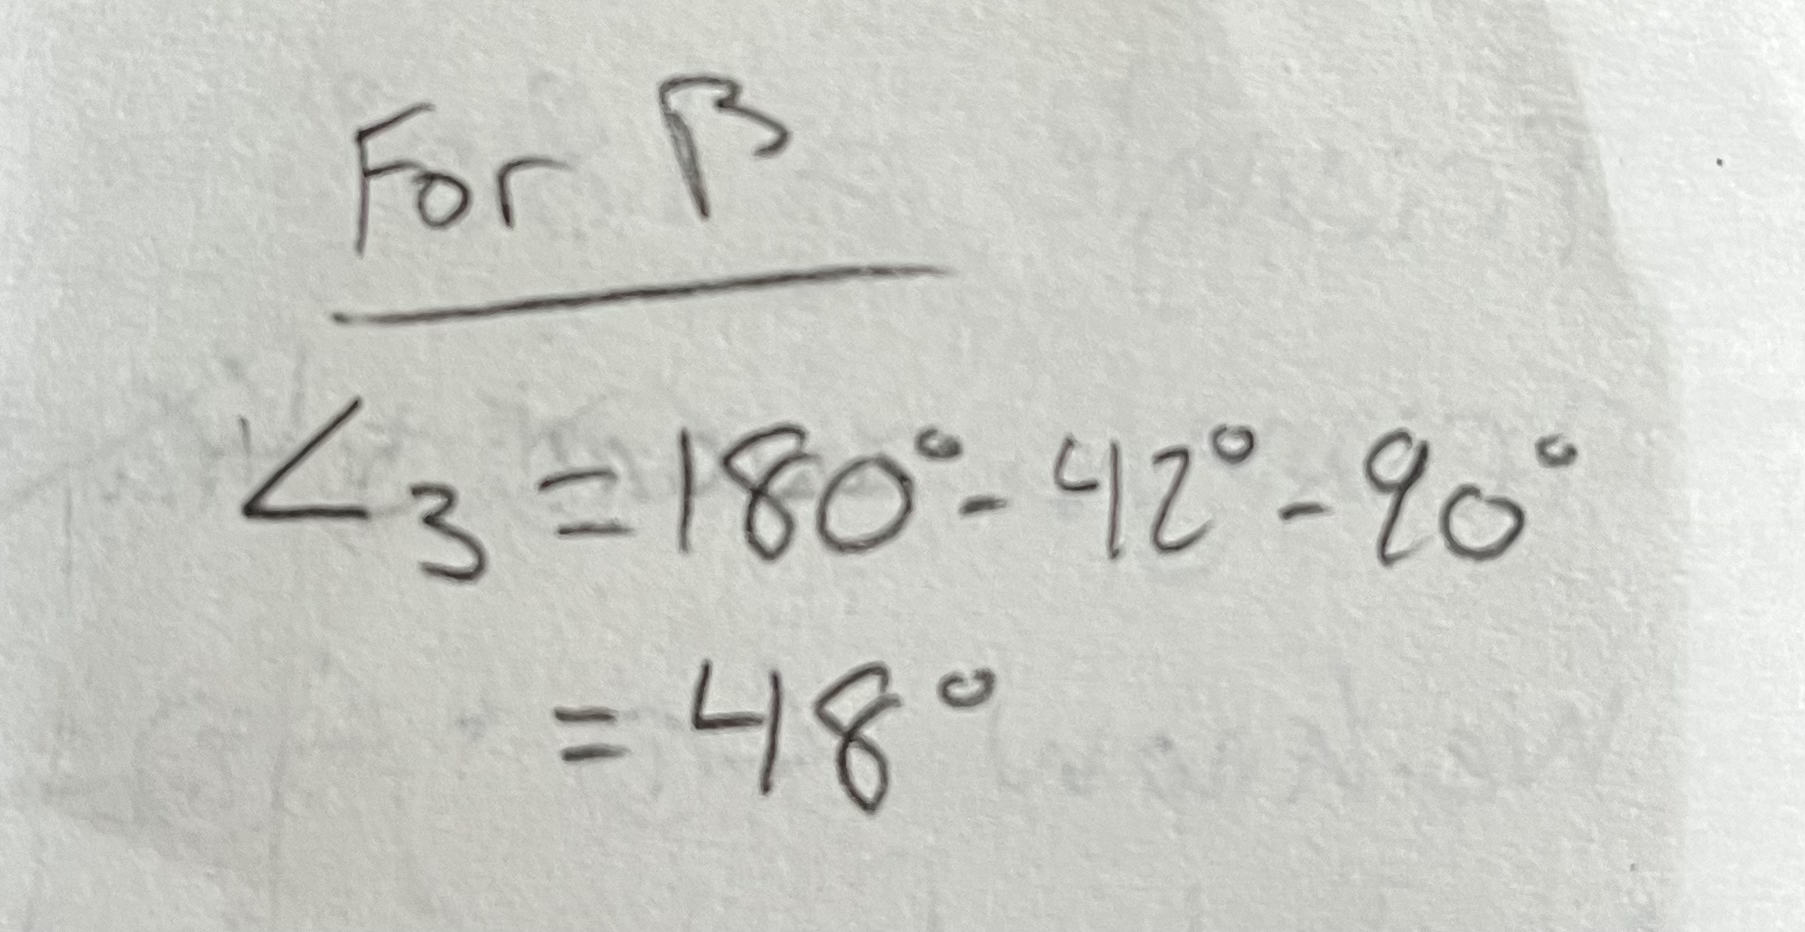 For β
∠3 = 180° - 42° - 90°
= 48°